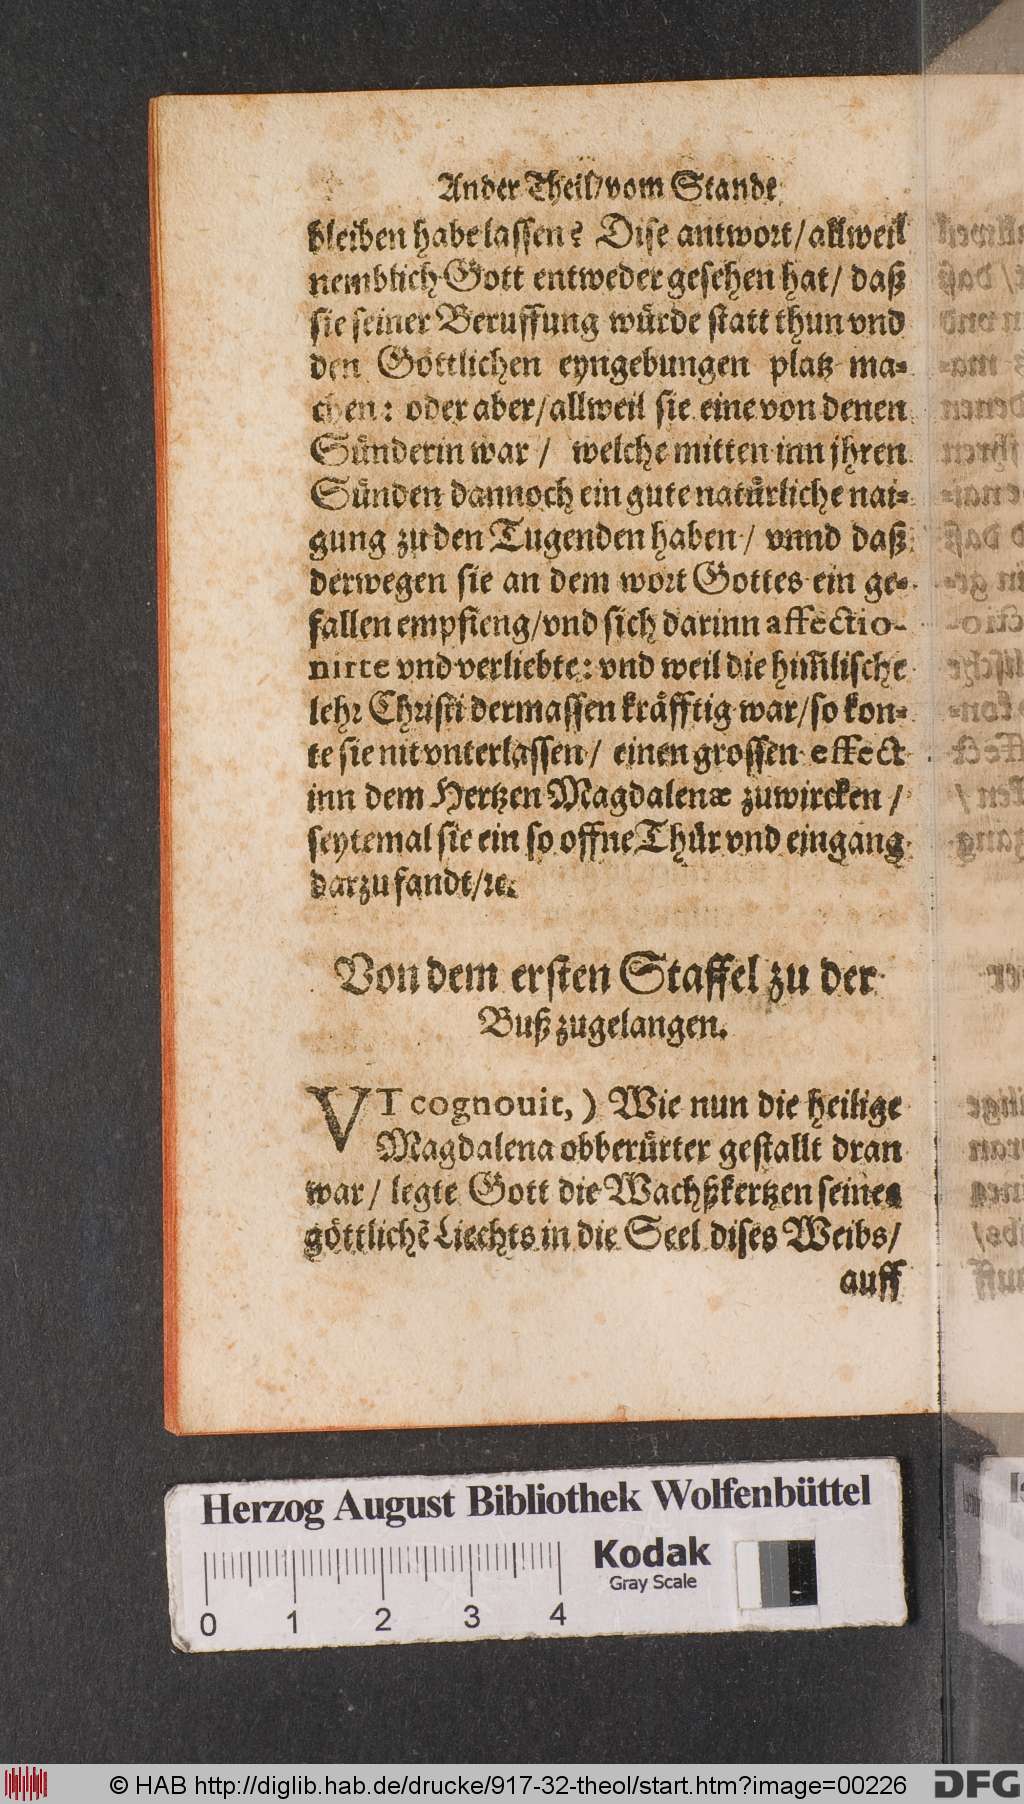 Ander Theil/vom Stande
bleiben habe lassen? Dise antwort/allweil
nemblich Gott entweder gesehen hat/ daß
sie seiner Beruffung würde statt thun vnd
den Göttlichen eyngebungen platz ma-
chen: oder aber/allweil sie eine von denen
Sünderin war / welche mitten inn jhren
Sünden dannoch ein gute natürliche nai-
gung zu den Tugenden haben / vnnd daß
derwegen sie an dem wort Gottes ein ge-
fallen empfieng/vnd sich darinn affectio-
nirte vnd verliebte: vnd weil die him̃lische
lehr Christi dermassen kräfftig war/so kon-
te sie nit vnterlassen / einen grossen effect
inn dem Hertzen Magdalenæ zuwircken /
seytemal sie ein so offne Thür vnd eingang
darzu fandt/ꝛc.
Von dem ersten Staffel zu der
Buß zugelangen.
VT cognouit, ) Wie nun die heilige
Magdalena obberürter gestallt dran
war / legte Gott die Wachßkertzen seines
göttlichẽ Liechts in die Seel dises Weibs/
auff
Herzog August Bibliothek Wolfenbüttel
Kodak
Gray Scale
0 1 2 3 4
© HAB http://diglib.hab.de/drucke/917-32-theol/start.htm?image=00226
DFG